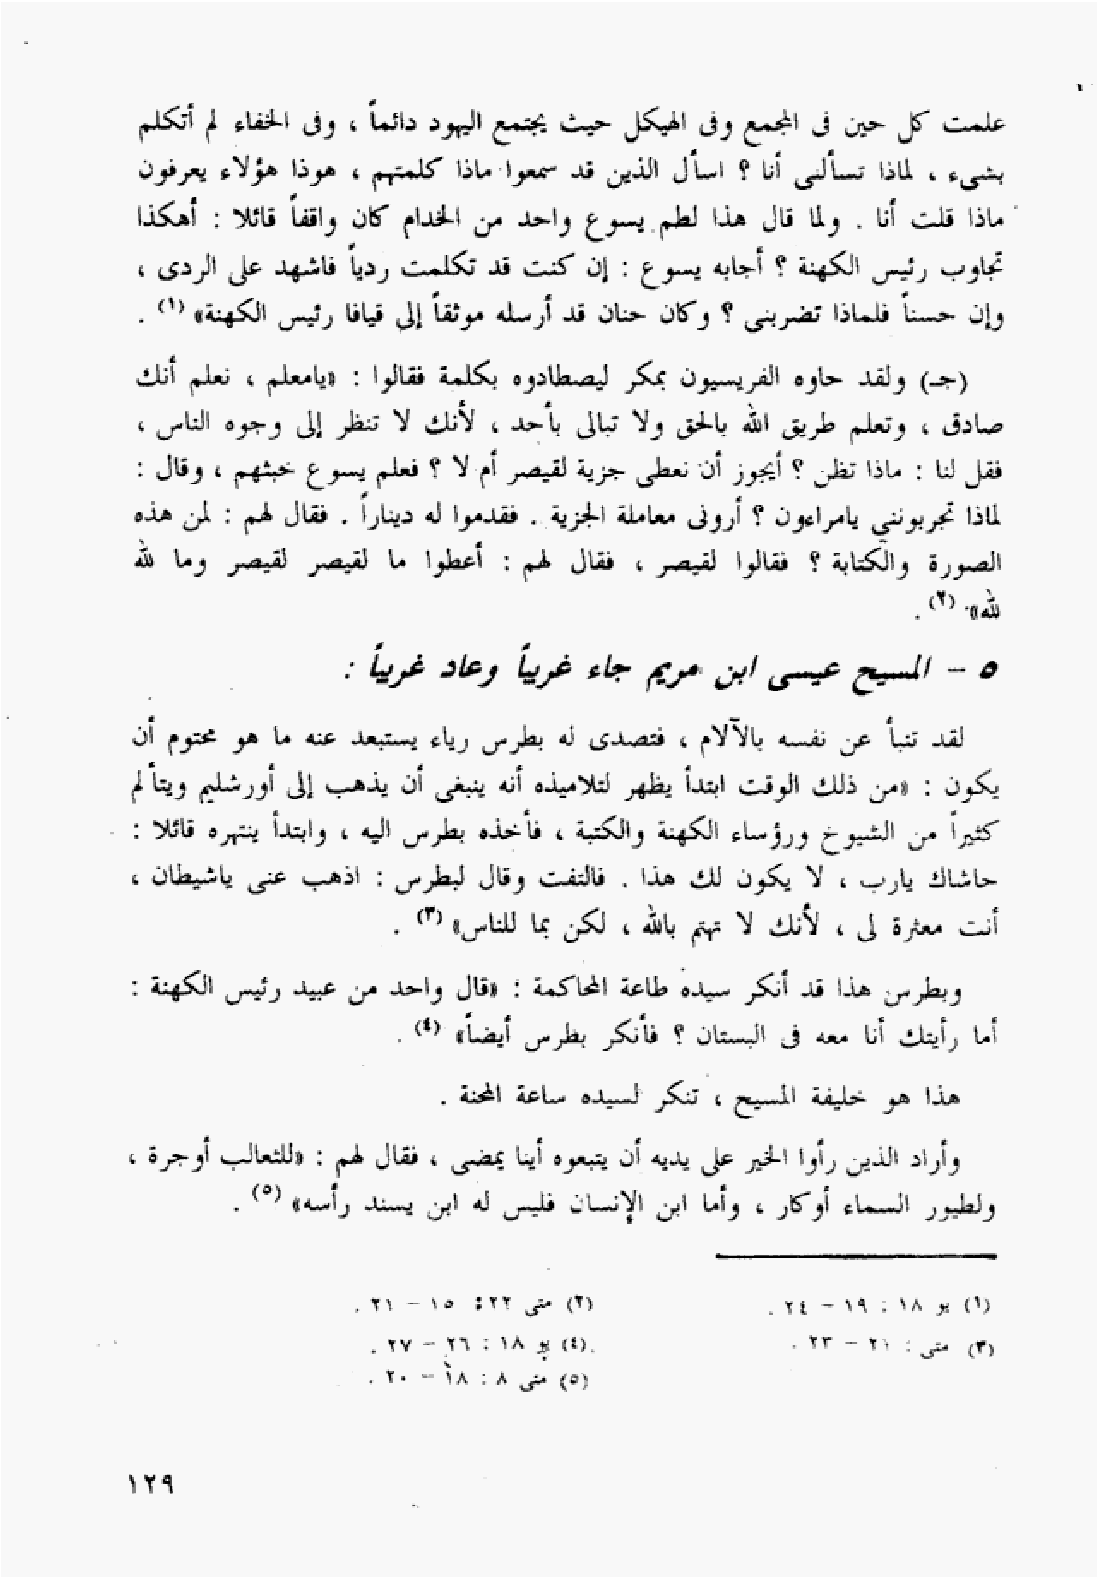 علمت كل حين فى المجمع وفى الهيكل حيث يجتمع اليهود دائماً ، وفى الخفاء لم أتكلم
بشىء ، لماذا تسألنى أنا ؟ اسأل الذين قد سمعوا ماذا كلمتهم ، هوذا هؤلاء يعرفون
ماذا قلت أنا . ولما قال هذا لطم يسوع واحد من الخدام كان واقفاً قائلا : أهكذا
تجاوب رئيس الكهنة ؟ أجابه يسوع : إن كنت قد تكلمت ردياً فاشهد على الردى ،
وإن حسناً فلماذا تضربنى ؟ وكان حنان قد أرسله موثقاً إلى قيافا رئيس الكهنة» (١) .
(جـ) ولقد حاوه الفريسيون بمكر ليصطادوه بكلمة فقالوا : «يامعلم ، نعلم أنك
صادق ، وتعلم طريق الله بالحق ولا تبالى بأحد ، لأنك لا تنظر إلى وجوه الناس ،
فقل لنا : ماذا تظن ؟ أيجوز أن نعطى جزية لقيصر أم لا ؟ فعلم يسوع خبثهم ، وقال :
لماذا تجربوننى يامراءون ؟ أرونى معاملة الجزية . فقدموا له ديناراً . فقال لهم : لمن هذه
الصورة والكتابة ؟ فقالوا لقيصر ، فقال لهم : أعطوا ما لقيصر لقيصر وما لله
لله» (٢) .
٥ – المسيح عيسى ابن مريم جاء غريباً وعاد غريباً :
لقد تنبأ عن نفسه بالآلام ، فتصدى له بطرس رياء يستبعد عنه ما هو محتوم أن
يكون : «من ذلك الوقت ابتدأ يظهر لتلاميذه أنه ينبغى أن يذهب إلى أورشليم ويتألم
كثيراً من الشيوخ ورؤساء الكهنة والكتبة ، فأخذه بطرس اليه ، وابتدأ ينتهره قائلا :
حاشاك يارب ، لا يكون لك هذا . فالتفت وقال لبطرس : اذهب عنى ياشيطان ،
أنت معثرة لى ، لأنك لا تهتم بالله ، لكن بما للناس» (٣) .
وبطرس هذا قد أنكر سيده طاعة المحاكمة : «قال واحد من عبيد رئيس الكهنة :
أما رأيتك أنا معه فى البستان ؟ فأنكر بطرس أيضاً» (٤) .
هذا هو خليفة المسيح ، تنكر لسيده ساعة المحنة .
وأراد الذين رأوا الخير على يديه أن يتبعوه أينا يمضى ، فقال لهم : «للثعالب أوجرة ،
ولطيور السماء أوكار ، وأما ابن الإنسان فليس له ابن يسند رأسه» (٥) .
(١) يو ١٨ : ١٩ – ٢٤ .
(٢) متى ٢٢: ١٥ – ٢١ .
(٣) متى : ٢١ – ٢٣ .
(٤) يو ١٨ : ٢٦ – ٢٧ .
(٥) متى ٨ : ١٨ – ٢٠ .
١٢٩